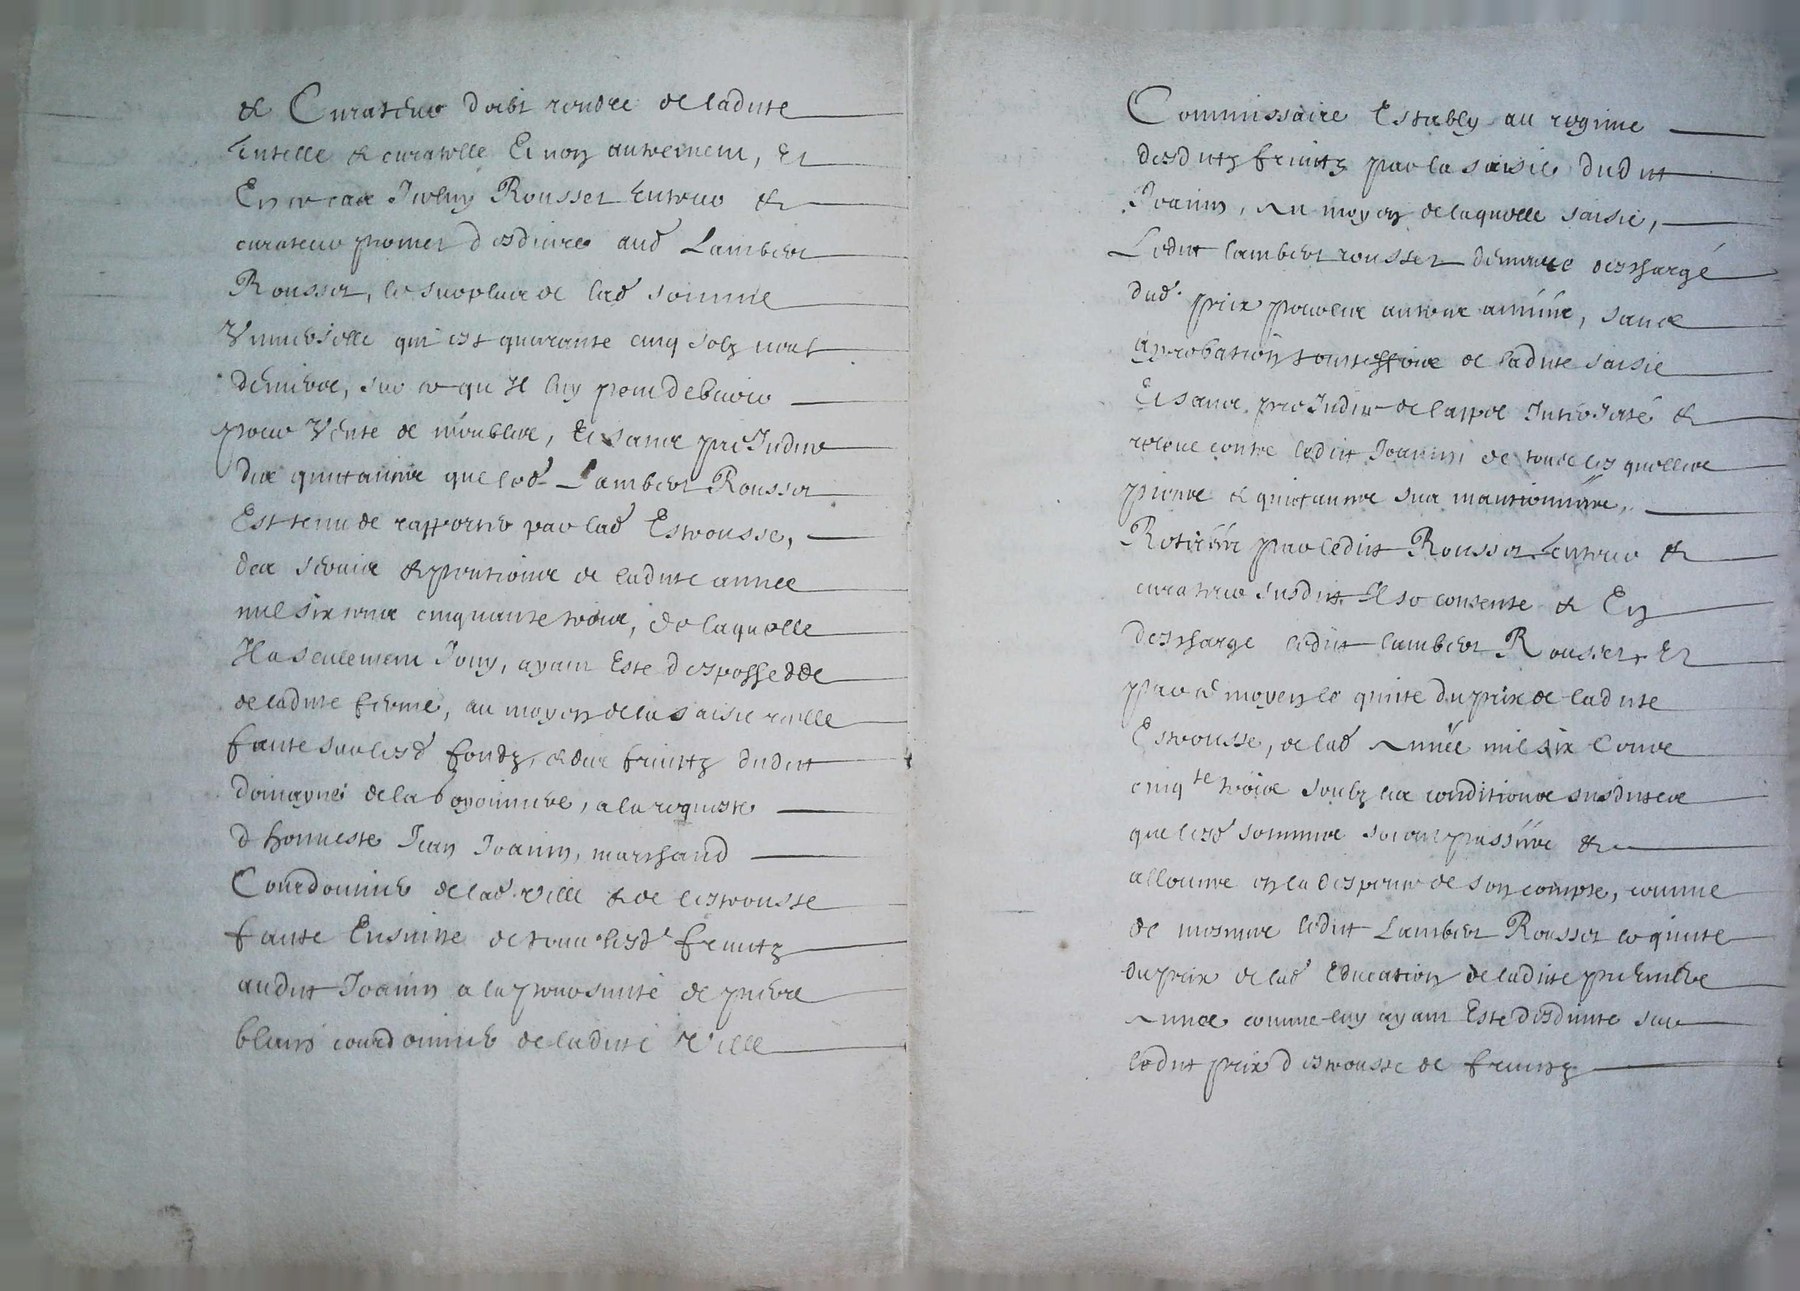 & Curateur doibt rendre de ladite
tutelle & curatelle Et non autrement, Et
En ce cas Iceluy Rousset tuteur &
curateur promet desduire aud Lambert
Rousset, le surplus de lad somme
Universelle qui est quarante cinq solz neuf
deniers, sur ce qu Il luy peut debvoir
pour Vente de meubles, Et sans preIudice
des quittances que led Lambert Rousset
Est tenu de rapporter par lad Estrousse,
des servis & pentions de ladite annee
mil six cens cinquante trois, de laquelle
Il a seulement Jouy, ayant Este despossedde
de ladite ferme, au moyen de la saisie reelle
faite sur lesd fondz, & des fruitz dudit
domayne de la, a la requeste
d honneste Jean Joanin, marchand
Courdonnier de lad. ville & de lestrousse
faite Ensuitte de tous lesd fruitz
audit Joanin a la de pierre
courdonnier de ladite Ville
Commissaire Estably au regime
desditz fruitz par la saisie dudit
Joanin, Au moyen de laquelle saisie,
Ledit lambert rousset demeure deschargé
dud. prix pour les autres années, sans
aprobation de ladite saisie
Et sans preIudice de lappel Interjetté &
contre ledit Joanin de toutes lesquelles
pieces & quittances sus mantionnées,
Retirées par ledit Rousset tuteur &
curateur susdit Il se contente & En
descharge ledit lambert Rousset, Et
par ce moyen le quitte du prix de ladite
Estrousse, de lad Année mil six Cens
cinq te trois soubz les conditions susdites
que lesd sommes seront passées &
alloues en la despence de son compte, comme
de mesmes ledit Lambert Rousset le quitte
du prix de lad Education de ladite premiere
Annee comme luy ayant Este desduite sur
ledit prix destrousse de fruitz